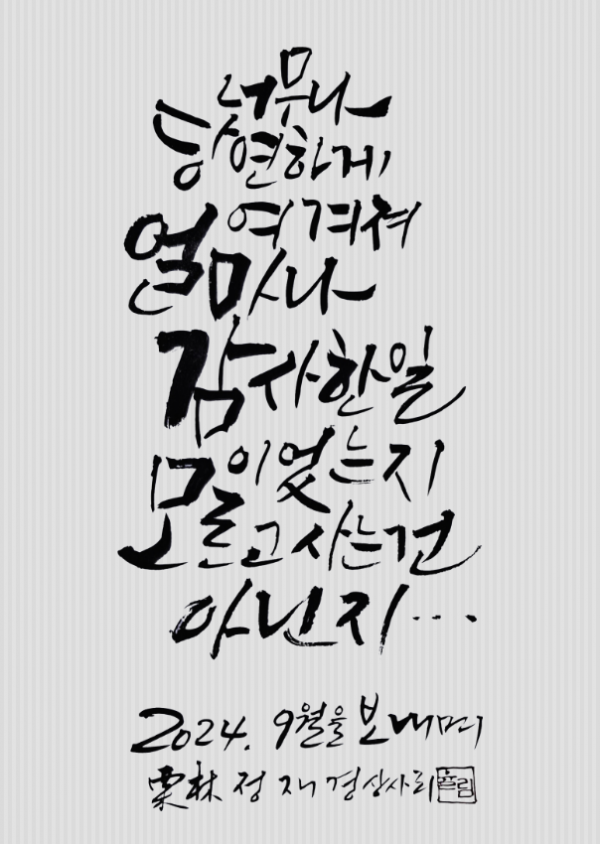 너무나
당연하게
여겨져
얼마나
감사한일
이었는지
모르고 사는건
아닌지...
2024. 9월을 보내며
栗林 정재경상사리 율림